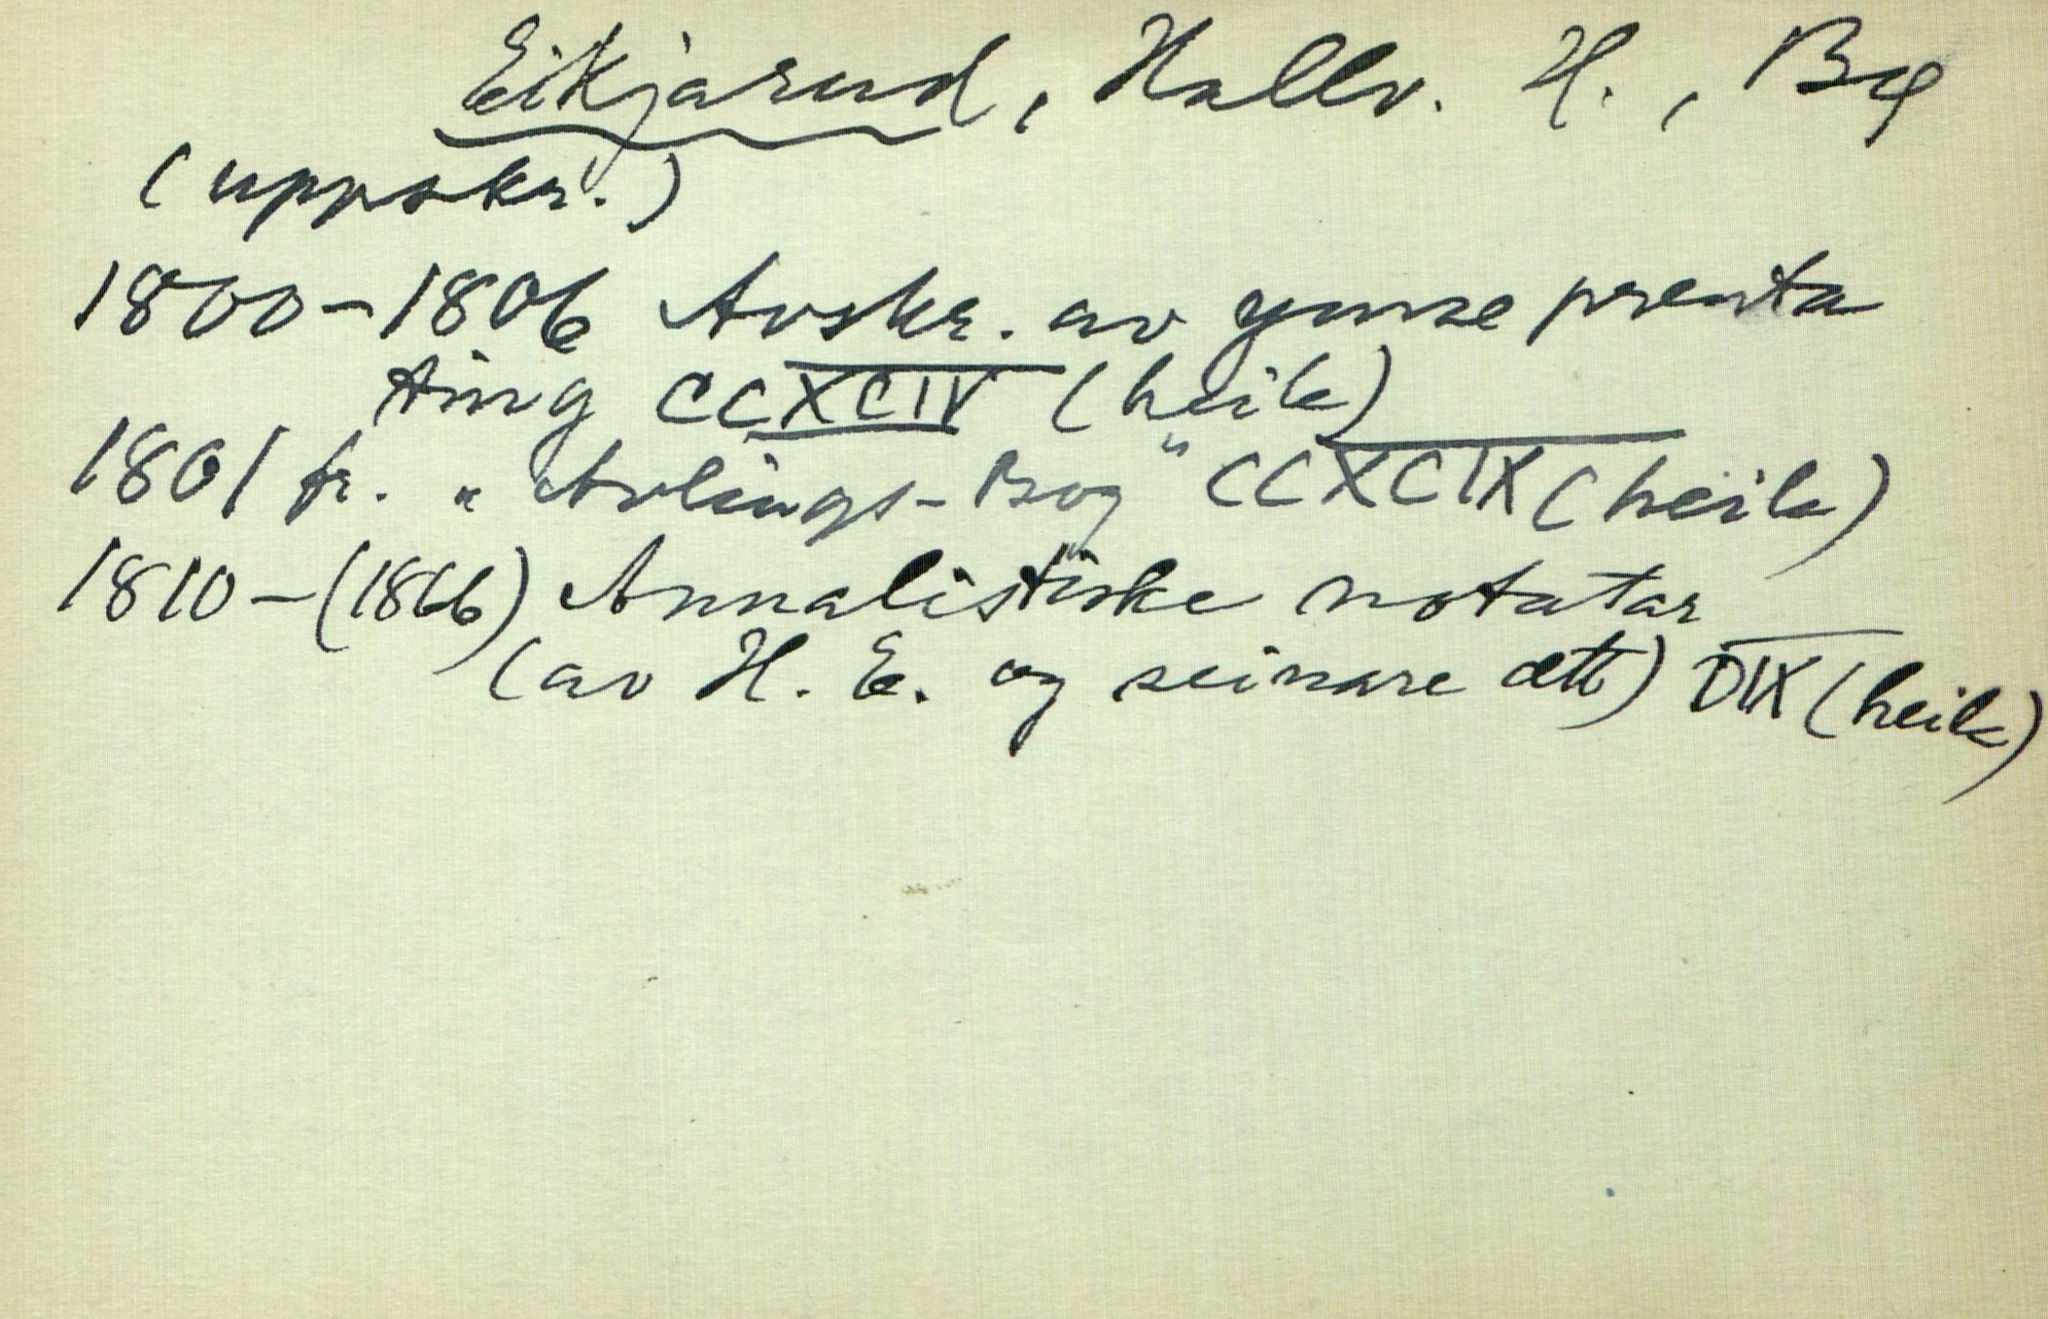 Eikjarud, Hallv. H., Bø
(uppskr.)
1800-1806 Avskr. av ymse prenta
ting CCXCIV (heile)
1801 fr. „Avlings-Bog" CCXCIX (heile)
1810-(1866) Annalistiske notatar
(av H. E. og seinare ætt) DIX (heile)